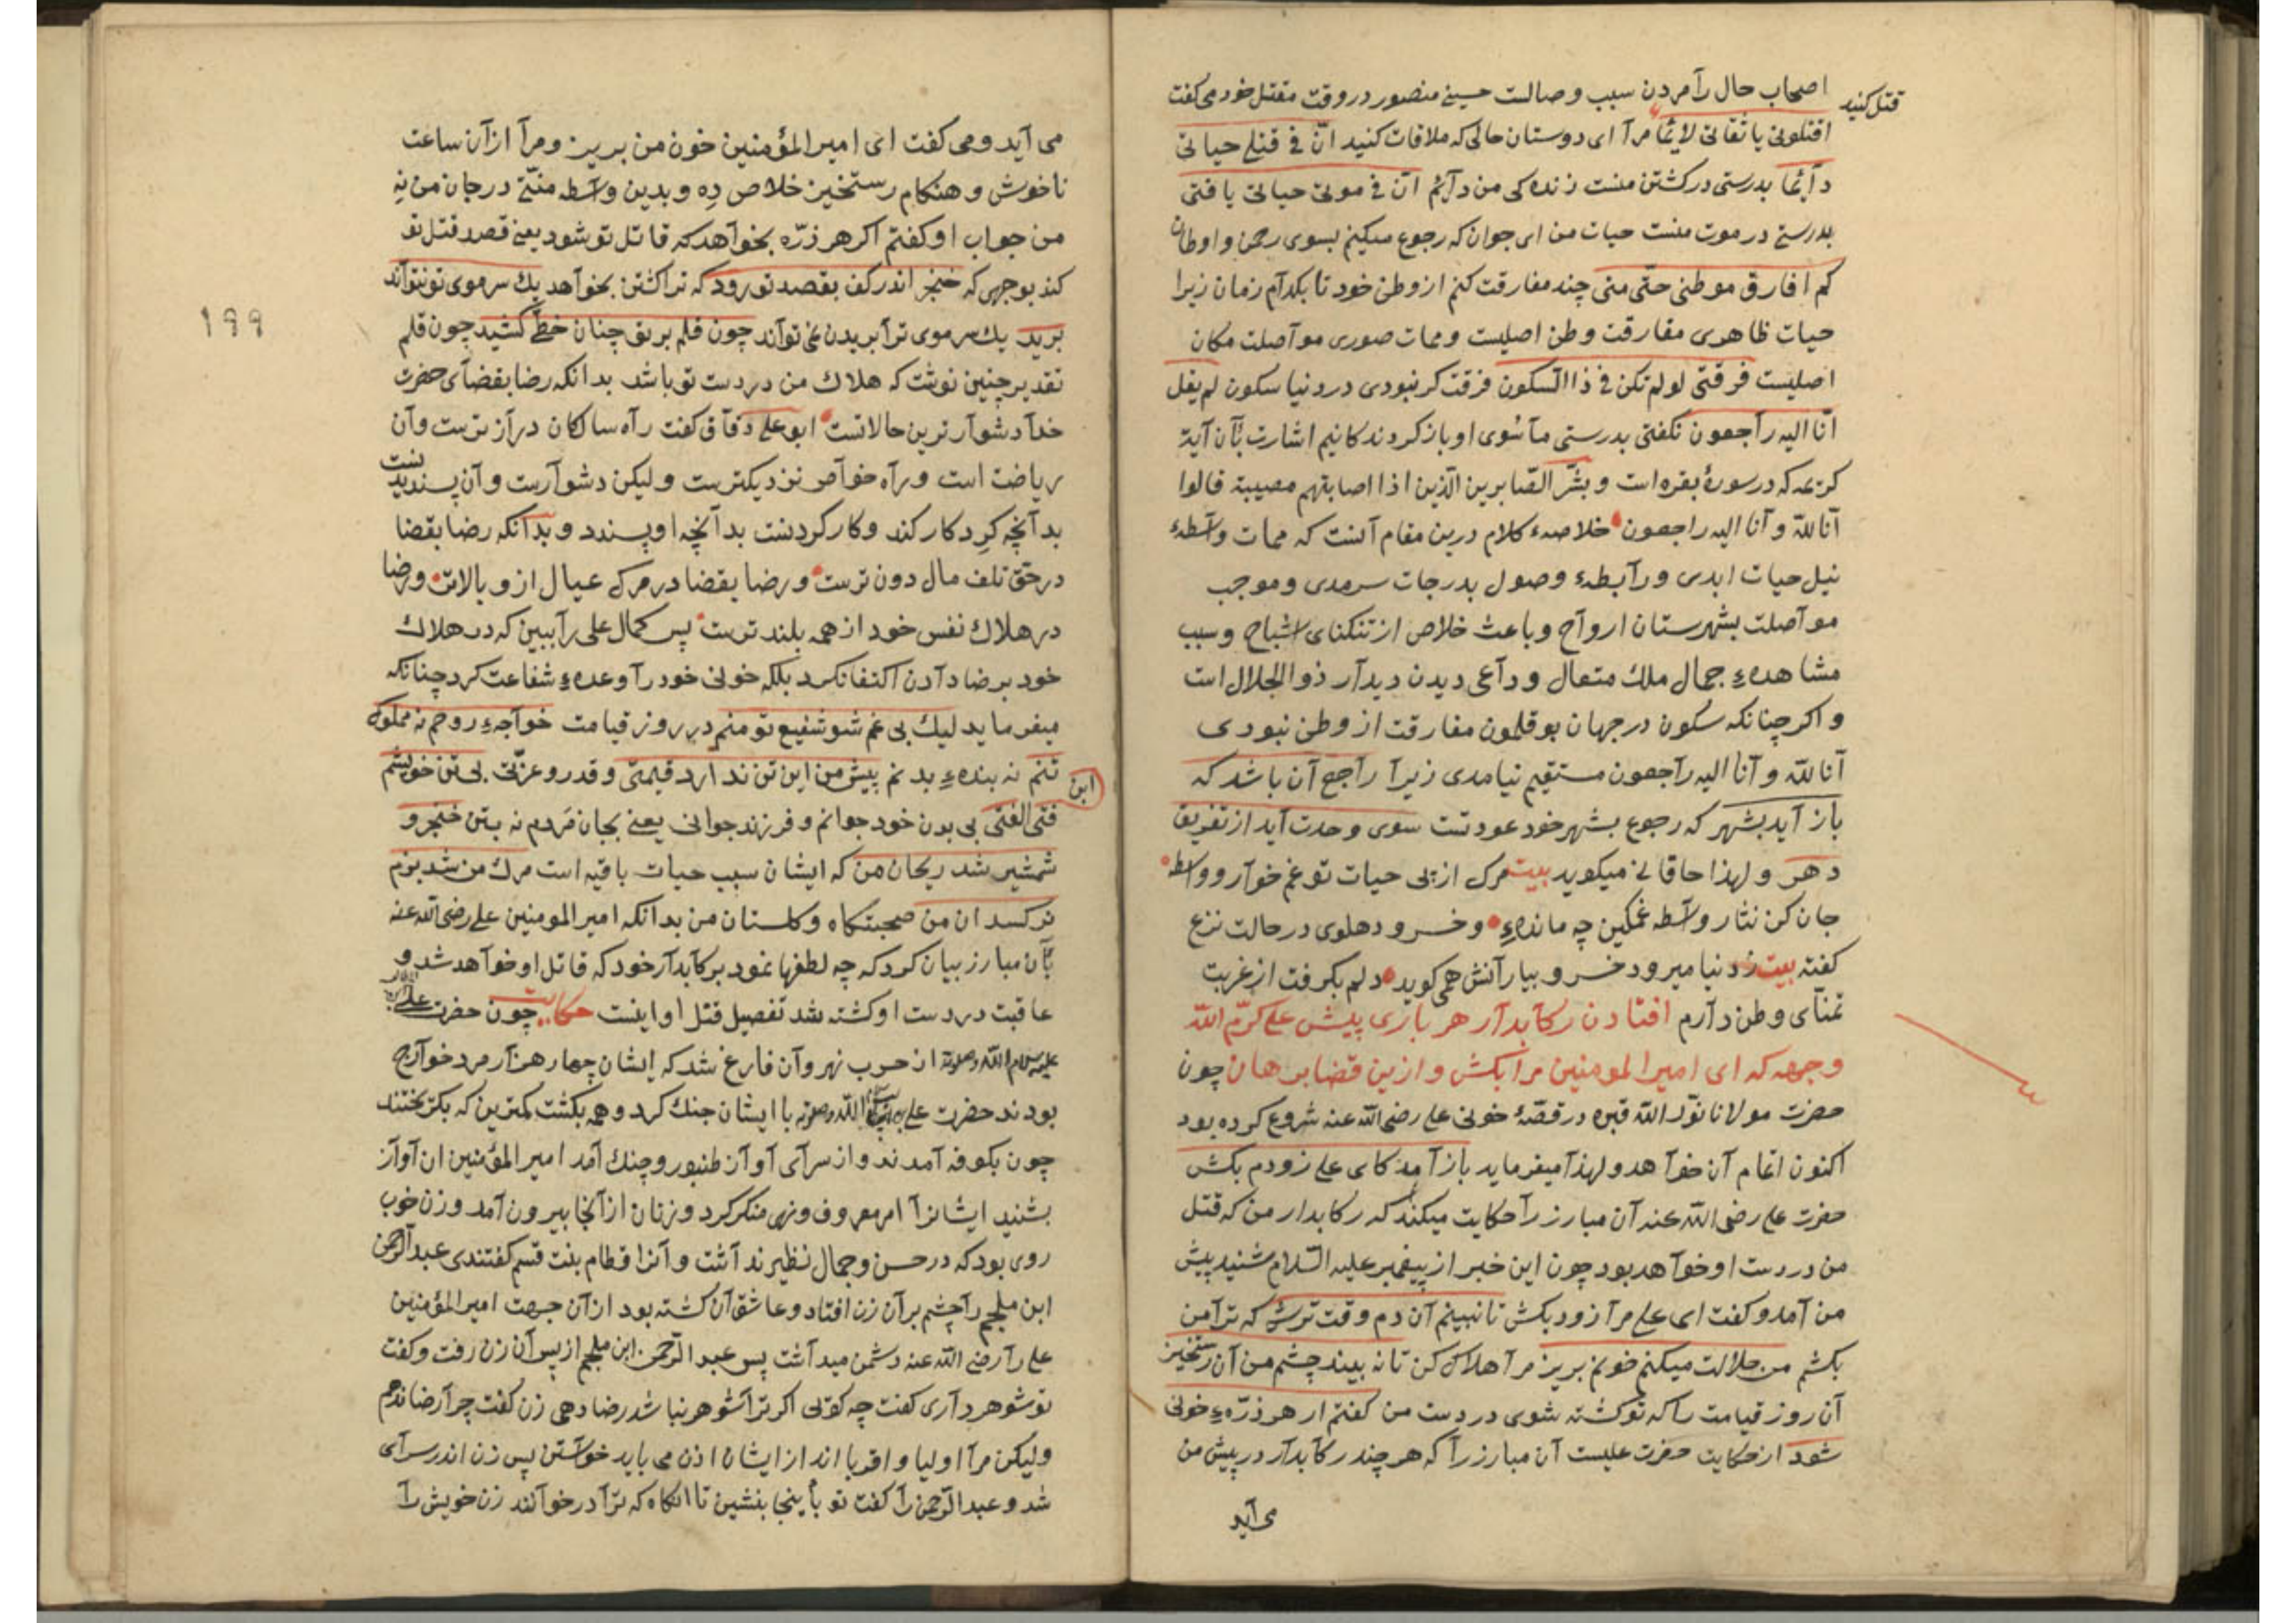 اصحاب حال را مردن سبب وصالست حسین منصور در وقت مقتل خود می کفت
قتل کنید
اقتلونی یا ثقاتی لایما مرا ای دوستان حالی که ملاقات کنید انّ فی قتلی حیاتی
دآیما بدرستی در کشتن منست زنده کی من دآیم انّ فی موتی حیاتی یا فتی
بدرستی در موت منست حیات من ای جوان که رجوع میکنم بسوی رحمن و اوطان
کم افارق موطنی حتّی متی چند مفارقت کنم از وطن خود تا بکدآم زمان زیرا
حیات ظاهری مفارقت وطن اصلیست و ممات صوری موآصلت مکان
اصلیست فرقتی لو لم تکن فی ذا السّکون فرقت کر نبودی در دنیا سکون لم یقل
انّا الیه رآجعون نکفتی بدرستی ما سوی او باز کردندکانیم اشارت بآن آیۀ
کریمه که در سورۀ بقره است و بشّر الصّابرین الذین اذا اصابتهم مصیبة قالوا
آنا لله و آنا الیه راجعون خلاصهء کلام درین مقام آنست که ممات وآسطهء
نیل حیات ابدی و رآبطهء وصول بدرجات سرمدی و موجب
موآصلت بشهرستان اروآح و باعث خلاص از تنکنای اشباح و سبب
مشاهدهء جمال ملك متعال و دآعی دیدن دیدآر ذو الجلال است
و اکر چنانکه سکون در جهان بوقلمون مفارقت از وطن نبودی
آنا لله و آنا الیه رآجعون مستقیم نیامدی زیرآ رآجع آن باشد که
باز آید بشهر که رجوع بشهر خود عودتست سوی وحدت آید از تفریق
دهر و لهذا خاقانی میکوید بیت مرک از پی حیات تو غم خوآر و واسطه
جان کن نثار وآسطه غمکین چه ماندهء و خسرو دهلوی در حالت نزع
کفته بیت ز دنیا میرود خسرو بیارآنش همی کوید دلم بکرفت از غربت
تمنآی وطن دآرم افتادن رکآبدآر هر باری پیش علی کرّم الله
وجهه که ای امیر المومنین مرا بکش و ازین قضا برهان چون
حضرت مولانا نوّر الله قبره در قصّۀ خونی علی رضی الله عنه شروع کرده بود
اکنون اتمام آن خوآهد و لهذآ میفرماید باز آمد کای علی زودم بکش
حضرت علی رضی الله عنه آن مبارز رآ حکایت میکند که رکابدار من که قتل
من در دست او خوآهد بود چون این خبر از پیغمبر علیه السّلام شنید پیش
من آمد و کفت ای علی مرآ زود بکش تا نبینم آن دم وقت ترش که ترآ من
بکشم من حلالت میکنم خونم بریز مرآ هلاک کن تا نه بیند چشم من آن رستخیز
آن روز قیامت را که تو کشته شوی در دست من کفتم ار هر ذرّهء خونی
شود از حکایت حضرت علیست آن مبارز رآ که هر چند رکآبدآر در پیش من
می آید
می آید و می کفت ای امیر المؤمنین خون من بریز و مرآ از آن ساعت
ناخوش و هنکام رستخیز خلاص ده و بدین وآسطه منّتی در جان من نه
من جواب او کفتم اکر هر ذرّه بخوآهد که قاتل تو شود یعنی قصد قتل تو
کند بوجهی که خنجر اندر کف بقصد تو رود که ترا کشتن بخوآهد یك سر موی تو نتوآند
۱۹۹
برید یك سر موی ترآ بریدن نمی توآند چون قلم بر تو چنان خطّی کشید چون قلم
تقدیر چنین نوشت که هلاك من در دست تو باشد بدانکه رضا بقضآی حضرت
خدآ دشوآرترین حالاتست ابو علی دقآق کفت رآه سالکان درآزترست و آن
ریاضت است و رآه خوآص نزدیکترست و لیکن دشوآرست و آن پسندیدنست
بدآنچه کرد کار کند و کار کردنست بدآنچه او پسندد و بدآنکه رضا بقضا
در حق تلف مال دون ترست و رضا بقضا در مرک عیال ازو بالاتر و رضا
در هلاك نفس خود از همه بلندترست پس کمال علی رآ ببین که در هلاك
خود بر رضا دآدن اکتفا نکرد بلکه خونی خود رآ وعدهء شفاعت کرد چنانکه
میفرماید لیك بی غم شو شفیع تو منم در روز قیامت خوآجهء روحم نه مملوک
تنم نه بندهء بدنم پیش من این تن ندارد قیمتی و قدر و عزّتی بی تن خویشم
ابن
فتی الفتی بی بدن خود جوانم و فرزند جوانی یعنی بجان مردم نه بتن خنجر و
شمشیر شد ریحان من که ایشان سبب حیات باقیه است مرك من شد بزم
نرکسدان من صحبتکاه و کلستان من بدانکه امیر المومنین علی رضی الله عنه
بآن مبارز بیان کرد که چه لطفها نمود بر رکآبدآر خود که قاتل او خوآهد شد و
عاقبت در دست او کشته شد تفصیل قتل او اینست حکایت چون حضرت علی
از حرب نهروآن فارغ شد که ایشان چهار هزآر مرد خوآرج
بودند حضرت علی با ایشان جنك کرد و همه بکشت کمترین که بکریختند
چون بکوفه آمدند و از سرآی آوآز طنبور و چنك آمد امیر المؤمنین ان آوآز
بشنید ایشانرآ امر معروف و نهی منکر کرد و زنان از آنجا بیرون آمد و زن خوب
روی بود که در حسن و جمال نظیر ندآشت و آنرا قطام بنت قسم کفتندی عبد الرّحمن
ابن ملجم رآ چشم بر آن زن افتاد و عاشق آن کشته بود از آن جهت امیر المؤمنین
علی رآ رضی الله عنه دشمن میدآشت پس عبد الرّحمن ابن ملجم از پس آن زن رفت و کفت
تو شوهر دآری کفت چه کوئی اکر ترآ شوهر نباشد رضا دهی زن کفت چرآ رضا ندهم
ولیکن مرآ اولیا و اقربا اند از ایشان اذن می باید خوآستن پس زن اندر سرآی
شد و عبد الرّحمن رآ کفت تو بأینجا بنشین تا انکاه که ترآ در خوآنند زن خویش رآ